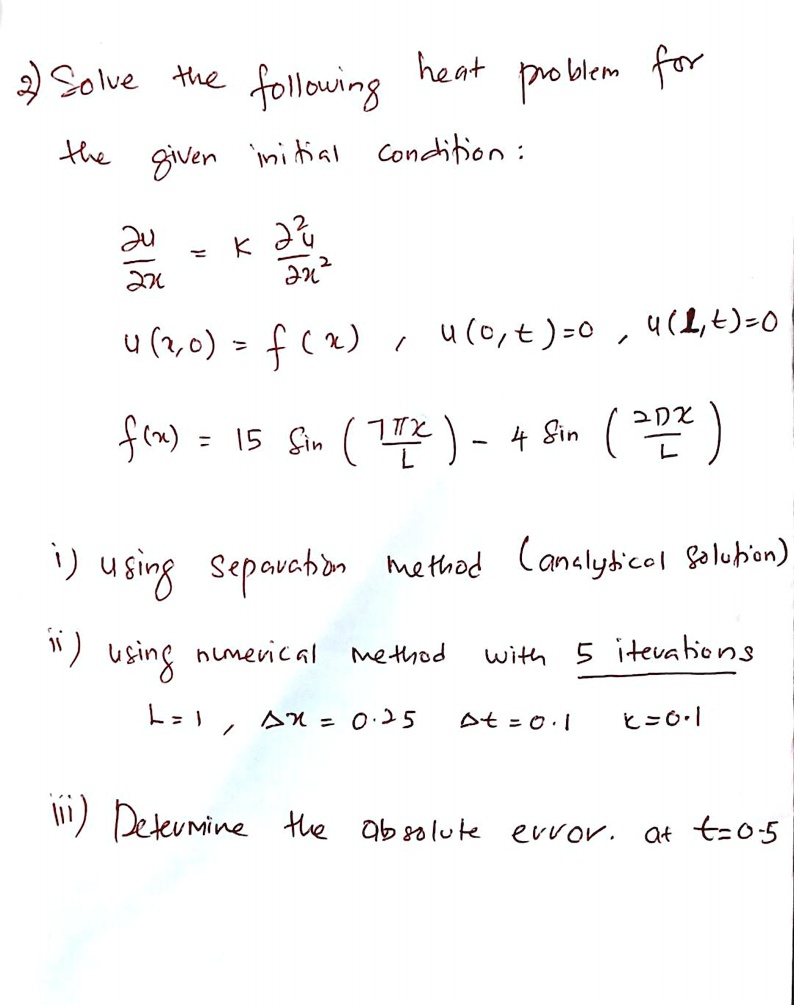 2) Solve the following heat problem for
the given initial condition:
∂u/∂x = K ∂²u/∂x²
u(x,0) = f(x) , u(0,t)=0 , u(L,t)=0
f(x) = 15 Sin (7πx/L) - 4 Sin (2πx/L)
i) using separation method (analytical solution)
ii) using numerical method with 5 iterations
L=1 , Δx = 0.25 Δt = 0.1 k=0.1
iii) Determine the absolute error. at t=0.5